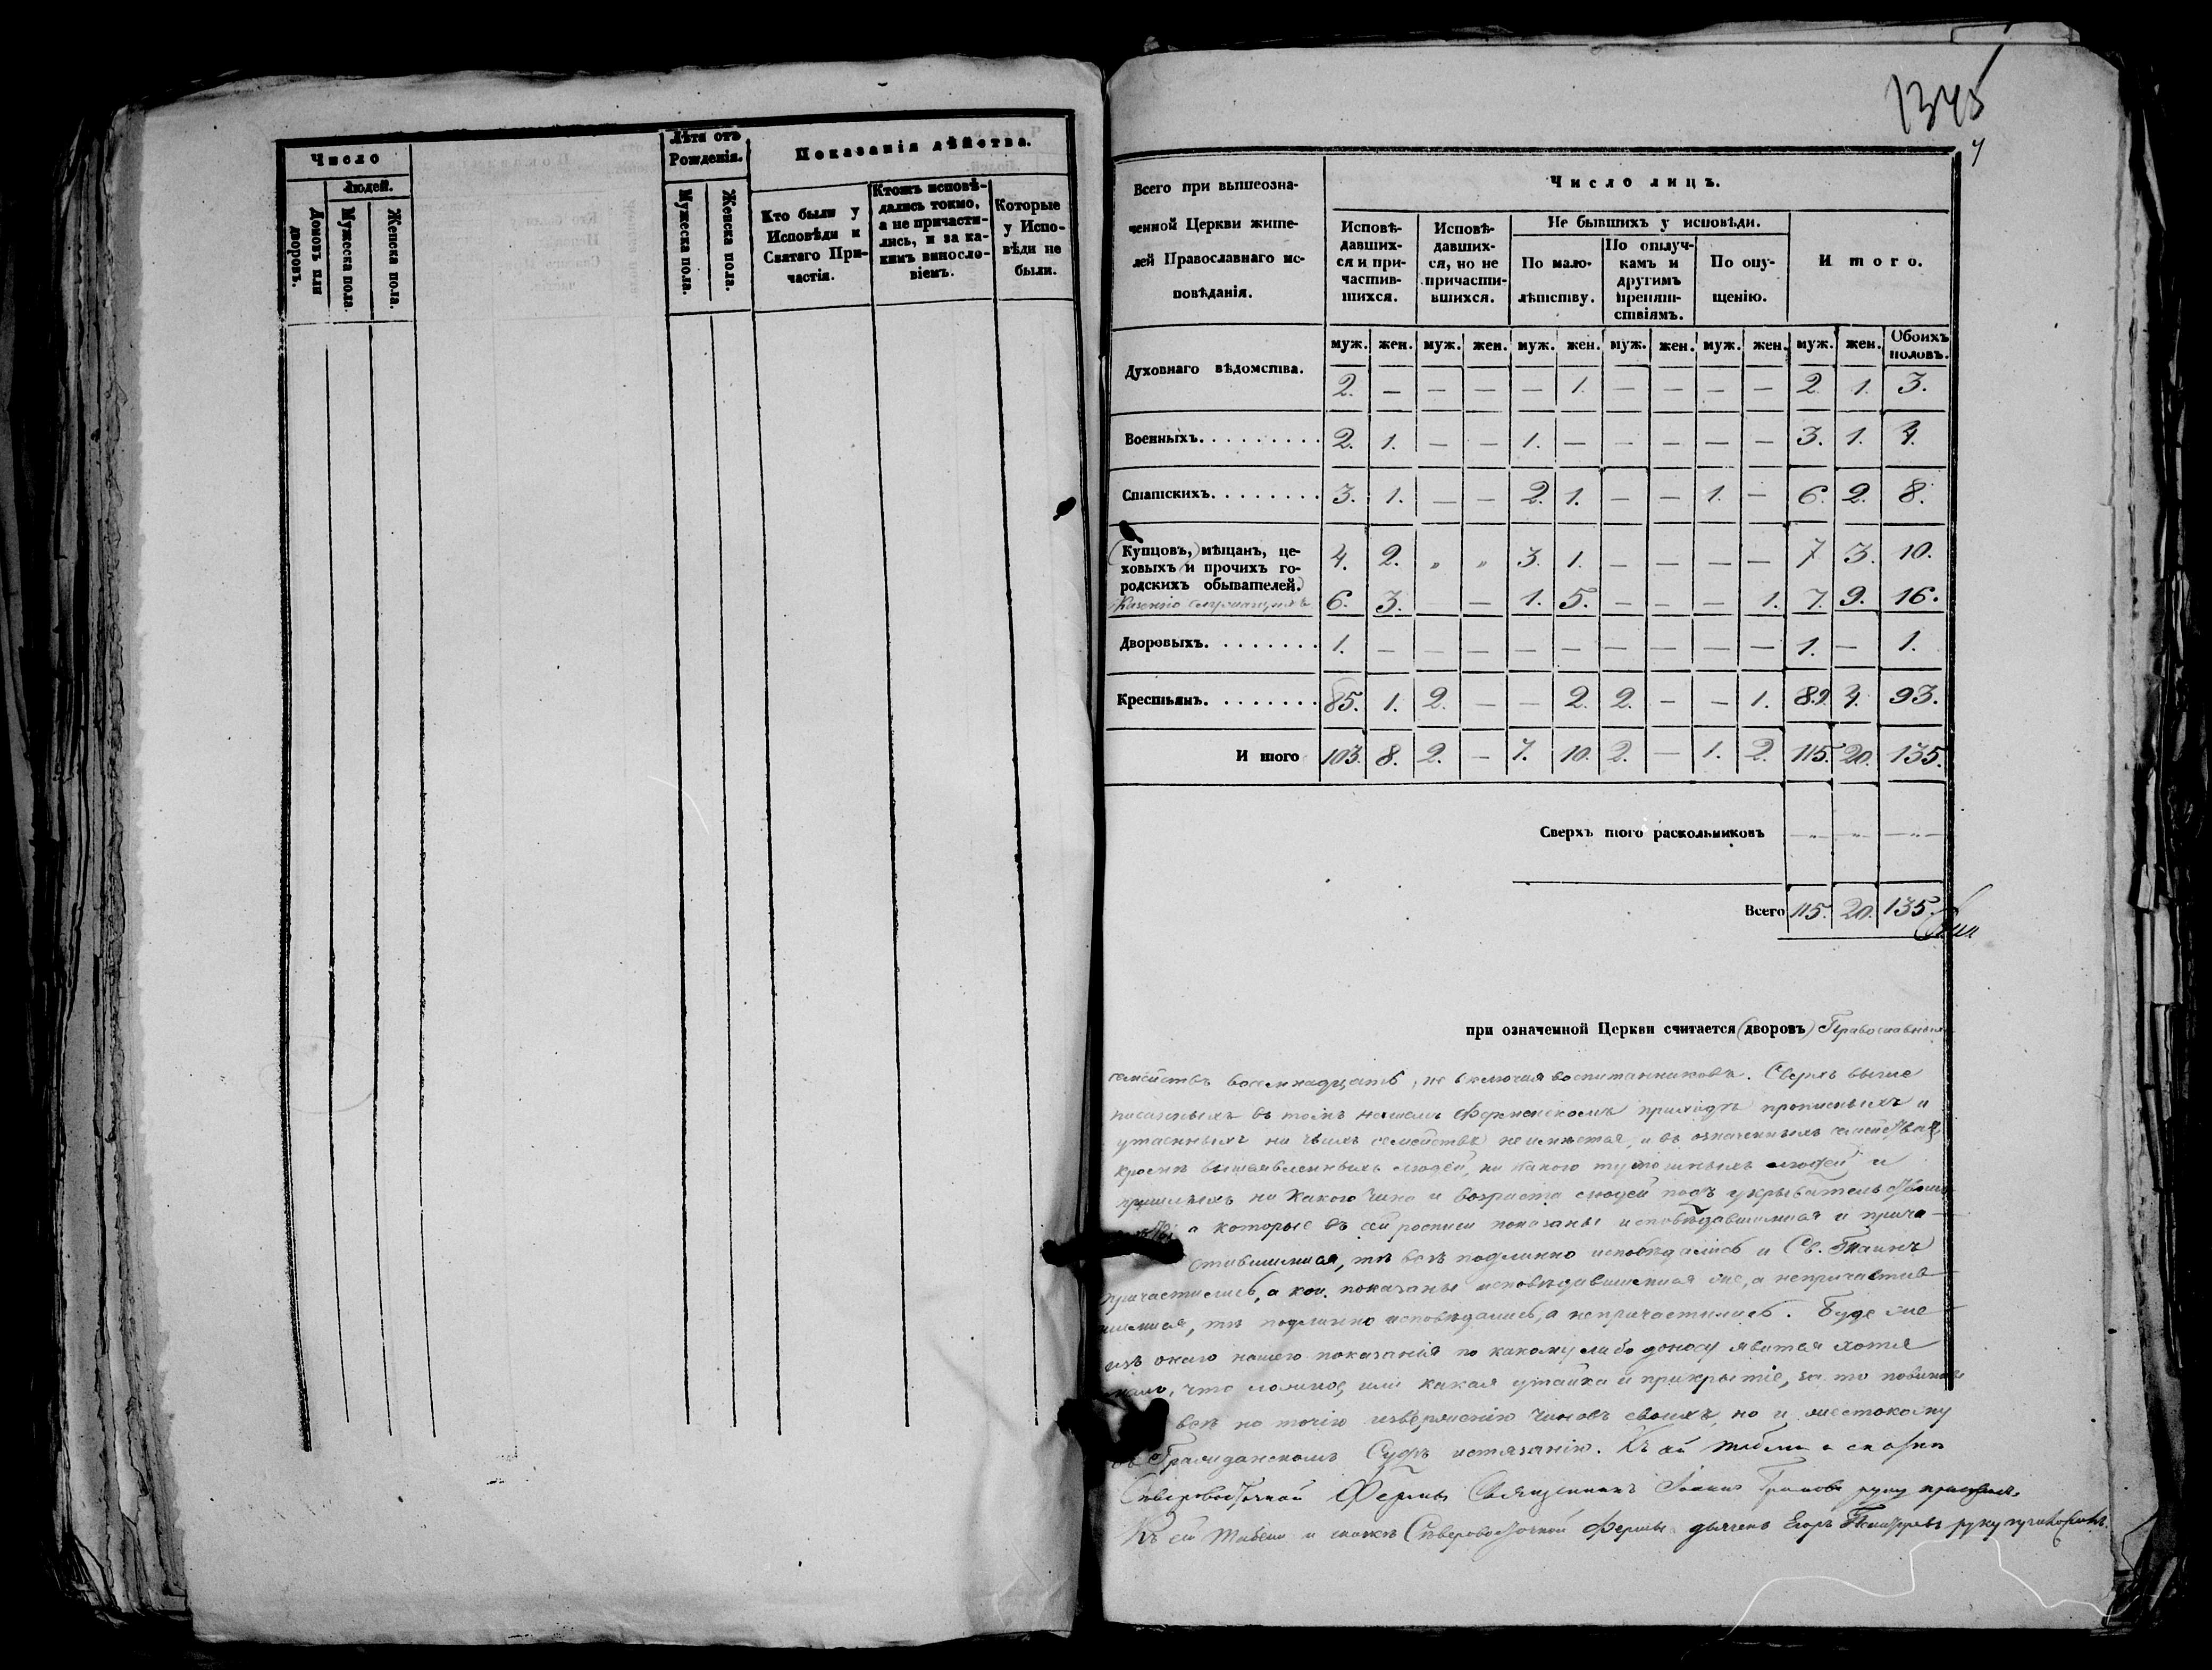 Число
Людей.
Домовъ или дворовъ.
Мужеска пола
Женска пола.
Лѣта отъ Рожденія.
Мужеска пола.
Женска пола.
Показанія дѣйства.
Кто были у Исповѣди и Святаго Причастія.
Ктожъ исповѣдались токмо, а не причастились, и за какимъ винословіемъ.
Которые у Исповѣди не были.
1345
Всего при вышеозна-
ченной Церкви жите-
лей Православнаго ис-
повѣданія.
Число лицъ.
Исповѣ-
давших-
ся и при-
частив-
шихся.
Исповѣ-
давших-
ся, но не
причасти-
вшихся.
Не бывшихъ у исповѣди.
По мало-
лѣтству.
По отлуч-
камъ и
другимъ
препят-
ствіямъ.
По опу-
щенію.
Итого.
муж. жен. муж. жен. муж. жен. муж. жен. муж. жен. муж. жен. Обоихъ половъ.
Духовнаго вѣдомства. 2. — — — — 1. — — — — 2. 1. 3.
Военныхъ. 2. 1. — — 1. — — — — — 3. 1. 4.
Статскихъ. 3. 1. — — 2. 1. — — 1. — 6. 2. 8.
(Купцовъ,) мѣщанъ, це-
ховыхъ (и прочихъ го-
родскихъ обывателей.)
4. 2. „ „ 3. 1. — — — — 7 3. 10.
Казенно служащихъ 6. 3. — — 1. 5. — — — 1. 7. 9. 16.
Дворовыхъ. 1. — — — — — — — — — 1. — 1.
Крестьянъ. 85. 1. 2. — — 2. 2. — — 1. 89. 4. 93.
Итого 103. 8. 2. — 7. 10. 2. — 1. 2. 115. 20. 135.
Сверхъ того раскольниковъ — — —
Всего 115. 20. 135.
при означенной Церкви считается (дворовъ) Православныхъ
семействъ восемнадцать, не включая воспитанниковъ. Сверхъ выше
писанныхъ въ томъ нашемъ Ферменскомъ приходѣ прописныхъ и
утаенныхъ ни чьихъ семействъ неимѣется, и въ означенныхъ семействахъ
кромѣ вышеявленныхъ людей, ни какого тутошныхъ людей и
пришлыхъ ни какого чина и возраста людей подъ укрывательствомъ
а которые въ сей росписи показаны исповѣдавшимися и прича-
стившимися, тѣ всѣ подлинно исповѣдались и Св. Таинъ
причастились, а кои показаны исповѣдавшимися же, а непричастив-
шимися, тѣ подлинно исповѣдались, а непричастились. Буде же
изъ онаго нашего показанія по какому либо доносу явится хотя
мало, что ложное, или какая утайка и прикрытіе, за то повинны
всѣ не точію изверженію чиновъ своихъ, но и жестокому
въ Гражданскомъ Судѣ истязанію. Къ сей табели и сказкѣ
Сѣверовосточной Фермы Священникъ Іоаннъ руку приложилъ.
Къ сей табели и сказкѣ Сѣверовосточной Фермы дьячекъ Егоръ руку приложилъ.